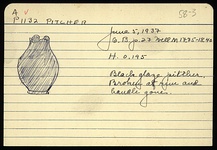 A v
58-3
P1132 PITCHER
June 5, 1937
G.B. p. 27 Well M 17.75-18.40
H. 0.195
Black glaze pitcher.
Broken at rim and
handle gone.